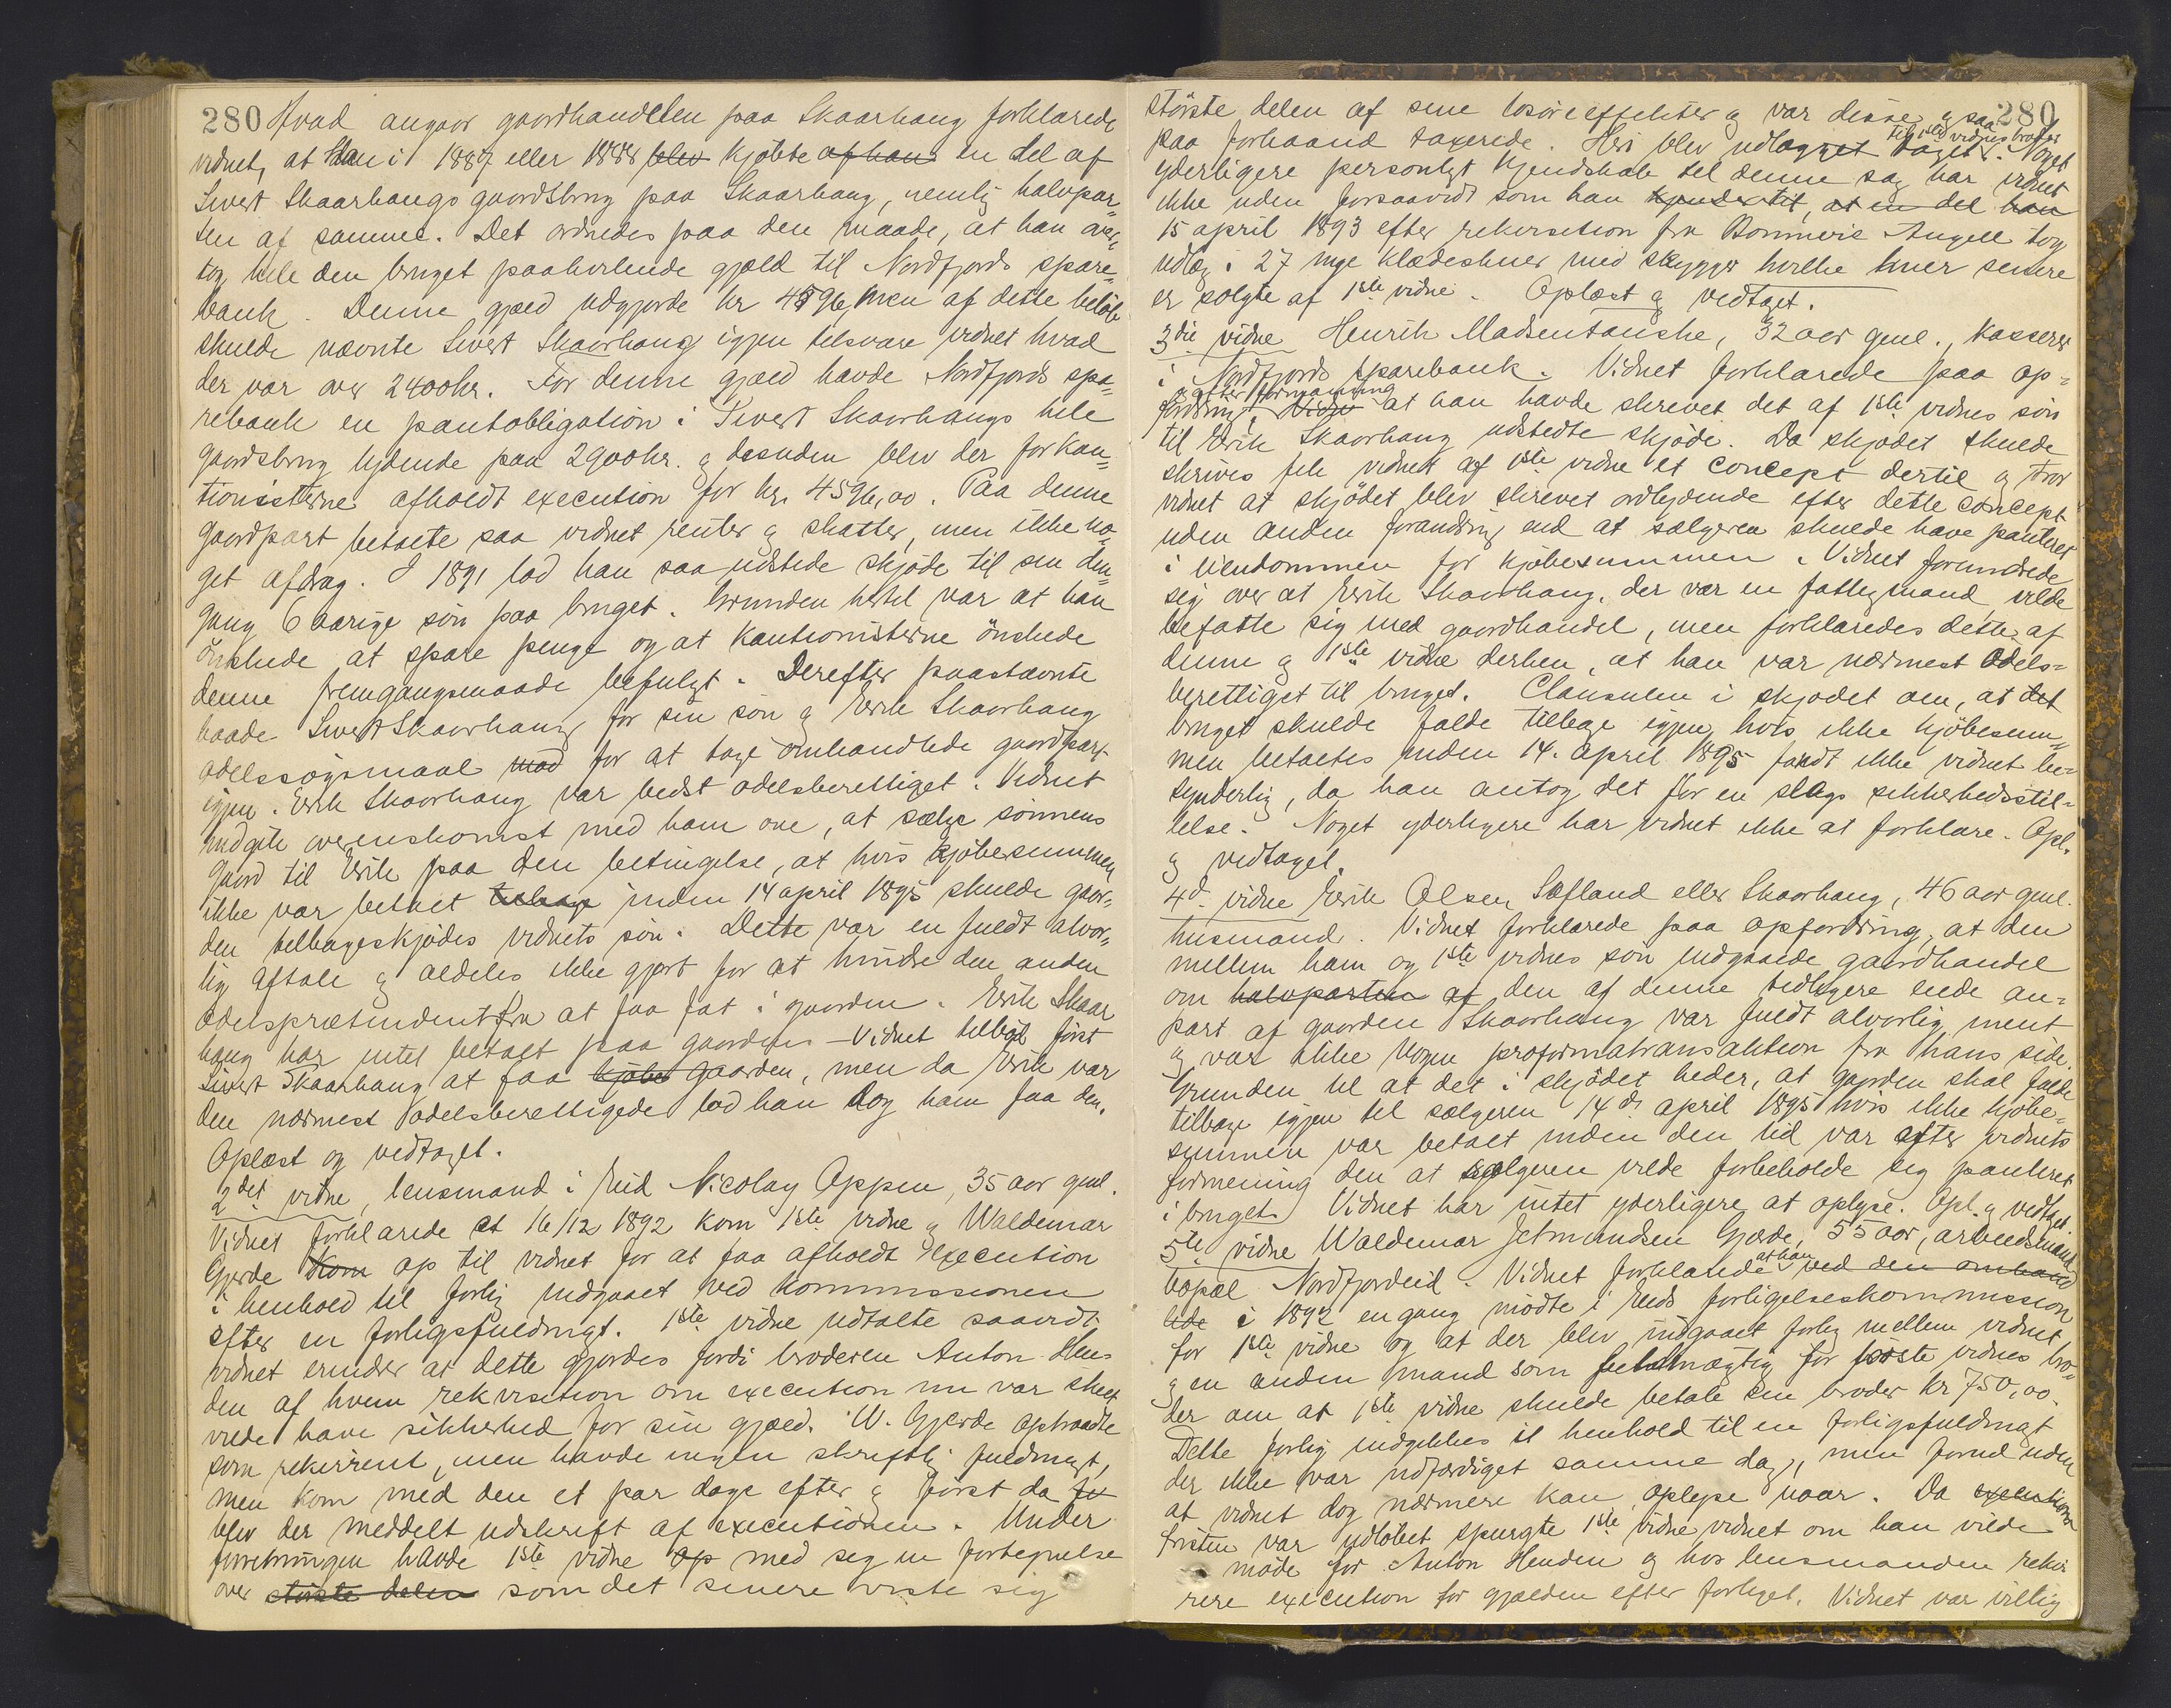 280 Hvad angaar gaardhandelen paa Skaarhaug forklarede
vidnet, at han i 1887 eller 1888 blev kjøbte af han en del af
Sivert Skaarhaugs gaardsbrug paa Skaarhaug, nemlig halvpar-
ten af samme. Det ordnedes paa den maade, at han over-
tog hele den bruget paahvilende gjæld til Nordfjords spare-
bank. Denne gjæld udgjorde kr 4596, men af dette beløb
skulde nævnte Sivert Skaarhaug igjen tilsvare vidnet hvad
der var over 2400 kr. For denne gjæld havde Nordfjords spa-
rebank en pantobligation i Sivert Skaarhaugs hele
gaardsbrug lydende paa 2900 kr. og desuden blev der for kau-
tionisterne afholdt execution for kr. 4596,00. Paa denne
gaardpart betalte saa vidnet renter og skatter, men ikke no-
get afdrag. I 1891 lod han saa udstede skjøde til sin den-
gang 6 aarige søn paa bruget. Grunden hertil var at han
ønskede at spare penge og at kautionisterne ønskede
denne fremgangsmaade befulgt. Derefter paastævnte
baade Sivert Skaarhaug for sin søn og Erik Skaarhaug
odelssøgsmaal mod for at tage omhandlede gaardpart
igjen. Erik Skaarhaug var bedst odelsberettiget. Vidnet
indgik overenskomst med ham om, at sælge sønnens
gaard til Erik paa den betingelse, at hvis kjøbesummen
ikke var betalt tilbage inden 14 april 1895 skulde gaar-
den tilbageskjødes vidnets søn. Dette var en fuldt alvor-
lig aftale og aldeles ikke gjort for at hindre den anden
odelsprætendent fra at faa fat i gaarden. Erik Skaar
haug har intet betalt paa gaarden – Vidnet tilbød først
Sivert Skaarhaug at faa kjøbet gaarden, men da Erik var
den nærmest odelsberettigede lod han dog ham faa den.
Oplæst og vedtaget.
2det vidne, lensmand i Eid Nicolay Oppen, 35 aar gml.
Vidnet forklarede at 16/12 1892 kom 1ste vidne og Waldemar
Gjerde kom op til vidnet for at faa afholdt execution
i henhold til forlig indgaaet ved kommissionen
efter en forligsfuldmagt. 1ste vidne udtalte saavidt
vidnet erindrer at dette gjordes fordi broderen Anton Hen-
den af hvem rekvisition om execution nu var skeet
vilde have sikkerhed for sin gjæld. W. Gjerde optraadte
som rekvirent, men havde ingen skriftlig fuldmagt,
men kom med den et par dage efter og først da
blev der meddelt udskrift af executionen. Under
forretningen havde 1ste vidne op med sig en fortegnelse
over største delen som det senere viste sig
280
største delen af sine løsøreeffekter og var disse og saa
paa forhaand taxerede. Heri blev udlægget taget til 1ste vidnes broder. Noget
yderligere personligt kjendskab til denne sag har vidnet
ikke uden forsaavidt som han kjender til, at en del han
15 april 1893 efter rekvisition fra Angell tog
udlæg i 27 nye klædeshuer med skygger hvilke huer senere
er solgte af 1ste vidne. Oplæst og vedtaget.
3die vidne Henrik Madsen, 32 aar gml., kasserer
i Nordfjords sparebank. Vidnet forklarede paa op-
fordring og efter formaning at han havde skrevet det af 1ste vidnes søn
til Erik Skaarhaug udstedte skjøde. Da skjødet skulde
skrives fik vidnet af 1ste vidne et concept dertil og tror
vidnet at skjødet blev skrevet ordlydende efter dette concept
uden anden forandring end at sælgeren skulde have panteret
i eiendommen for kjøbesummen. Vidnet forundrede
sig over at Erik Skaarhaug, der var en fattigmand vilde
befatte sig med gaardhandel, men forklaredes dette af
denne og 1ste vidne derhen, at han var nærmest odels-
berettiget til bruget. Clausulen i skjødet om, at det
bruget skulde falde tilbage igjen, hvis ikke kjøbesum-
men betaltes inden 14. april 1895 fandt ikke vidnet be-
synderlig, da han antog det for en slags sikkerhedsstil-
lelse. Noget yderligere har vidnet ikke at forklare. Opl.
og vedtaget.
4d. vidne Erik Olsen Sætland eller Skaarhaug, 46 aar gml.
husmand. Vidnet forklarede paa opfordring, at den
mellem ham og 1ste vidnes søn indgaaede gaardhandel
om halvparten af den af denne tidligere eiede an-
part af gaarden Skaarhaug var fuldt alvorlig ment
og var ikke nogen proformatransaktion fra hans side.
Grunden til at det i skjødet heder, at gaarden skal falde
tilbage igjen til sælgeren 14de april 1895 hvis ikke kjøbe-
summen var betalt inden den tid var efter vidnets
formening den at sælgeren vilde forbeholde sig panteret
i bruget. Vidnet har intet yderligere at oplyse. Opl. og vedtaget.
5te vidne Waldemar Jetmundsen Gjerde, 55 aar, arbeidsmand
bopæl Nordfjordeid. Vidnet forklarede at han ved den omhand
lede i 1892 engang mødte i Eids forligelseskommission
for 1ste vidne og at der blev indgaaet forlig mellem vidnet
og en anden mand som fuldmægtig for første vidnes bro-
der om at 1ste vidne skulde betale sin broder kr 750,00.
Dette forlig indgikkes i henhold til en forligsfuldmagt
der ikke var udfærdiget samme dag, men forud uden
at vidnet dog nærmere kan oplyse naar. Da exekutions
fristen var udløbet spurgte 1ste vidne vidnet om han vilde
møde for Anton Henden og hos lensmanden rekvi
rere execution for gjælden efter forliget. Vidnet var villig